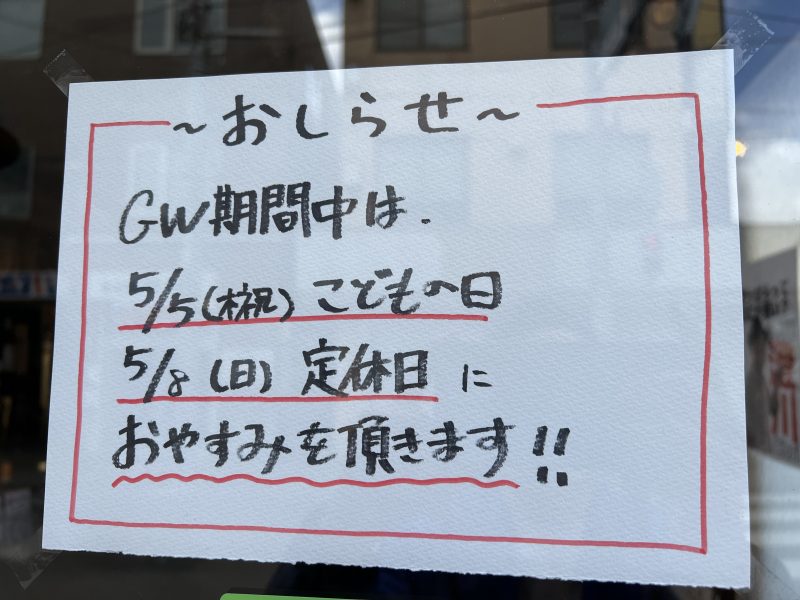 ～おしらせ～
GW期間中は.
5/5(木祝) こどもの日
5/8 (日) 定休日 に
おやすみを頂きます!!